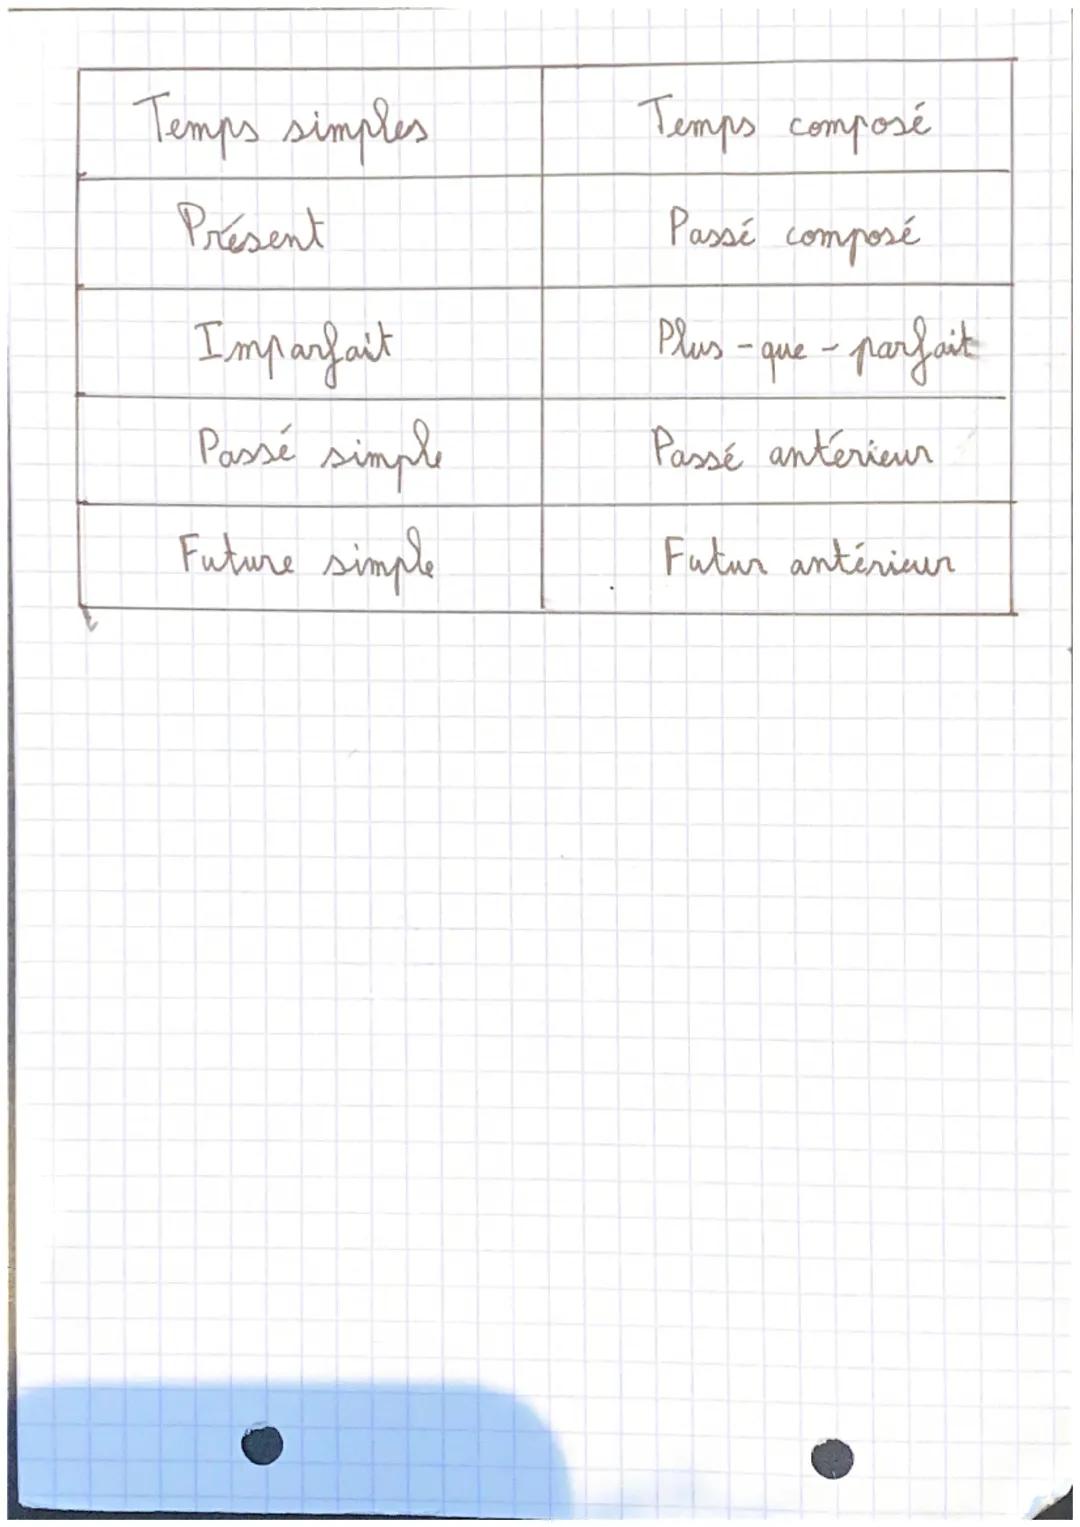 Temps simples Temps composé
Présent Passé composé
Imparfait Plus-que-parfait
Passé simple Passé antérieur
Future simple Futur antérieur